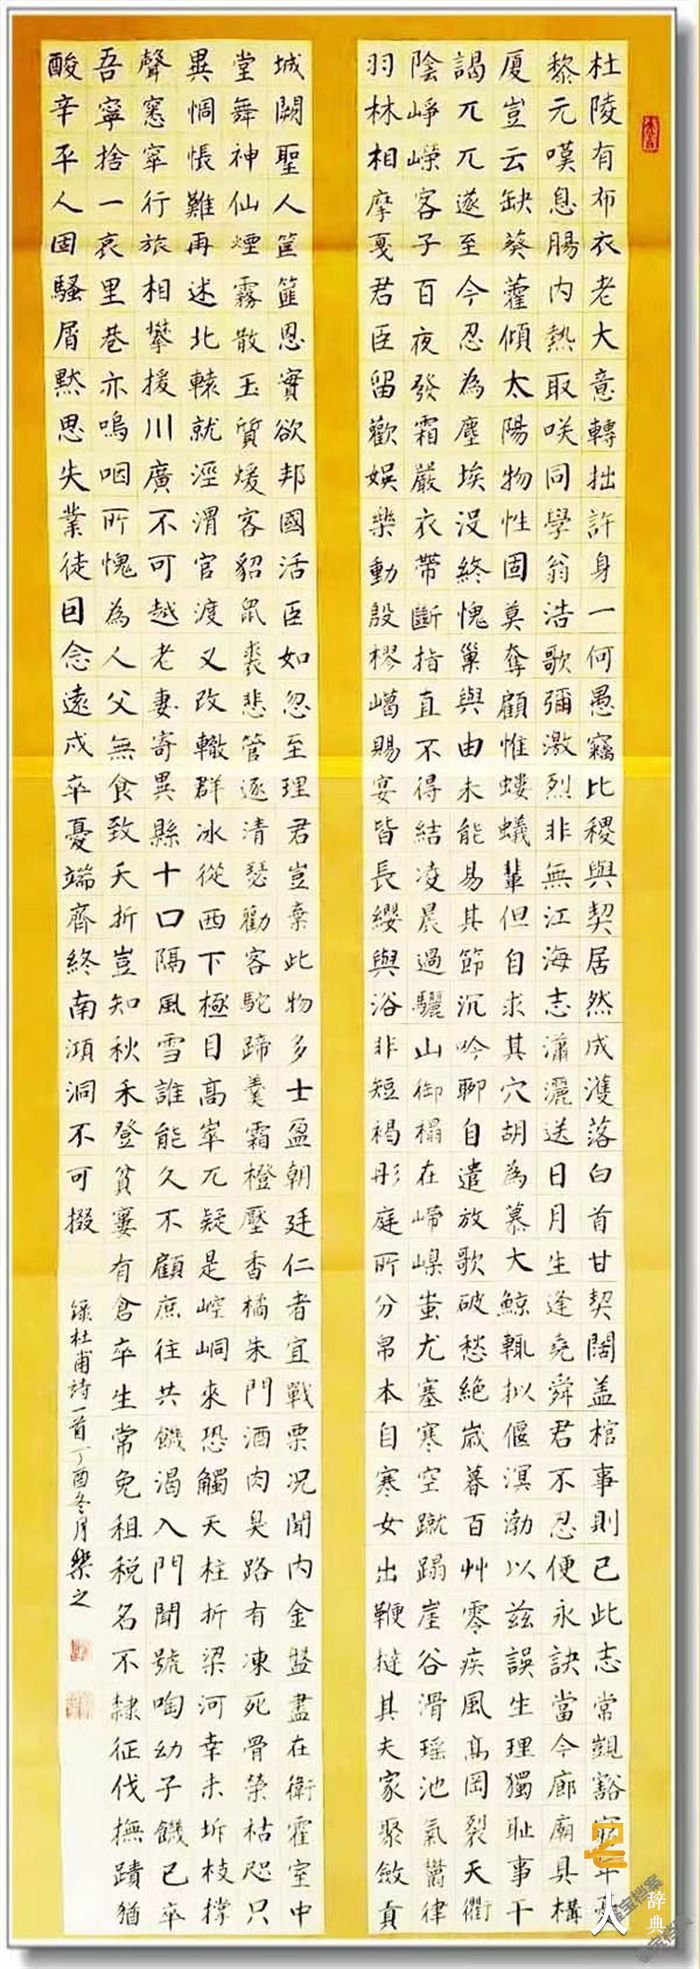 杜陵有布衣老大意轉拙許身一何愚竊比稷與契居然成濩落白首甘契闊盖棺事則已此志常覬豁窮年憂
黎元嘆息腸內熱取咲同學翁浩歌彌激烈非無江海志瀟灑送日月生逢堯舜君不忍便永訣當今廊廟具構
厦豈云缺葵藿傾太陽物性固莫奪顧惟螻蟻輩但自求其穴胡為慕大鯨輒拟偃溟渤以茲誤生理獨耻事干
謁兀兀遂至今忍為塵埃沒終愧巢與由未能易其節沉吟聊自遣放歌破愁絕歲暮百艸零疾風高岡裂天衢
陰崢嶸客子百夜發霜嚴衣帶斷指直不得結凌晨過驪山御榻在嵽嵲蚩尤塞寒空蹴蹋崖谷滑瑶池氣鬱律
羽林相摩戛君臣留歡娛樂動殷樛嶱賜宴皆長纓與浴非短褐彤庭所分帛本自寒女出鞭撻其夫家聚斂貢
城闕聖人筐篚恩實欲邦國活臣如忽至理君豈棄此物多士盈朝廷仁者宜戰栗况聞内金盤盡在衛霍室中
堂舞神仙煙霧散玉質煖客貂鼠裘悲管逐清瑟勸客駝蹄羹霜橙壓香橘朱門酒肉臭路有凍死骨榮枯咫只
異惆悵難再述北轅就涇渭官渡又改轍群冰從西下極目高崒兀疑是崆峒來恐觸天柱折梁河幸未坼枝撐
聲窸窣行旅相攀援川廣不可越老妻寄異縣十口隔風雪誰能久不顧庶往共饑渴入門聞號啕幼子饑已卒
吾寧捨一哀里巷亦嗚咽所愧為人父無食致夭折豈知秋禾登貧窶有倉卒生常免租税名不隸征伐撫蹟猶
酸辛平人固騷屑默思失業徒因念遠戍卒憂端齊終南澒洞不可掇
錄杜甫詩一首丁酉冬月樂之
人辞典